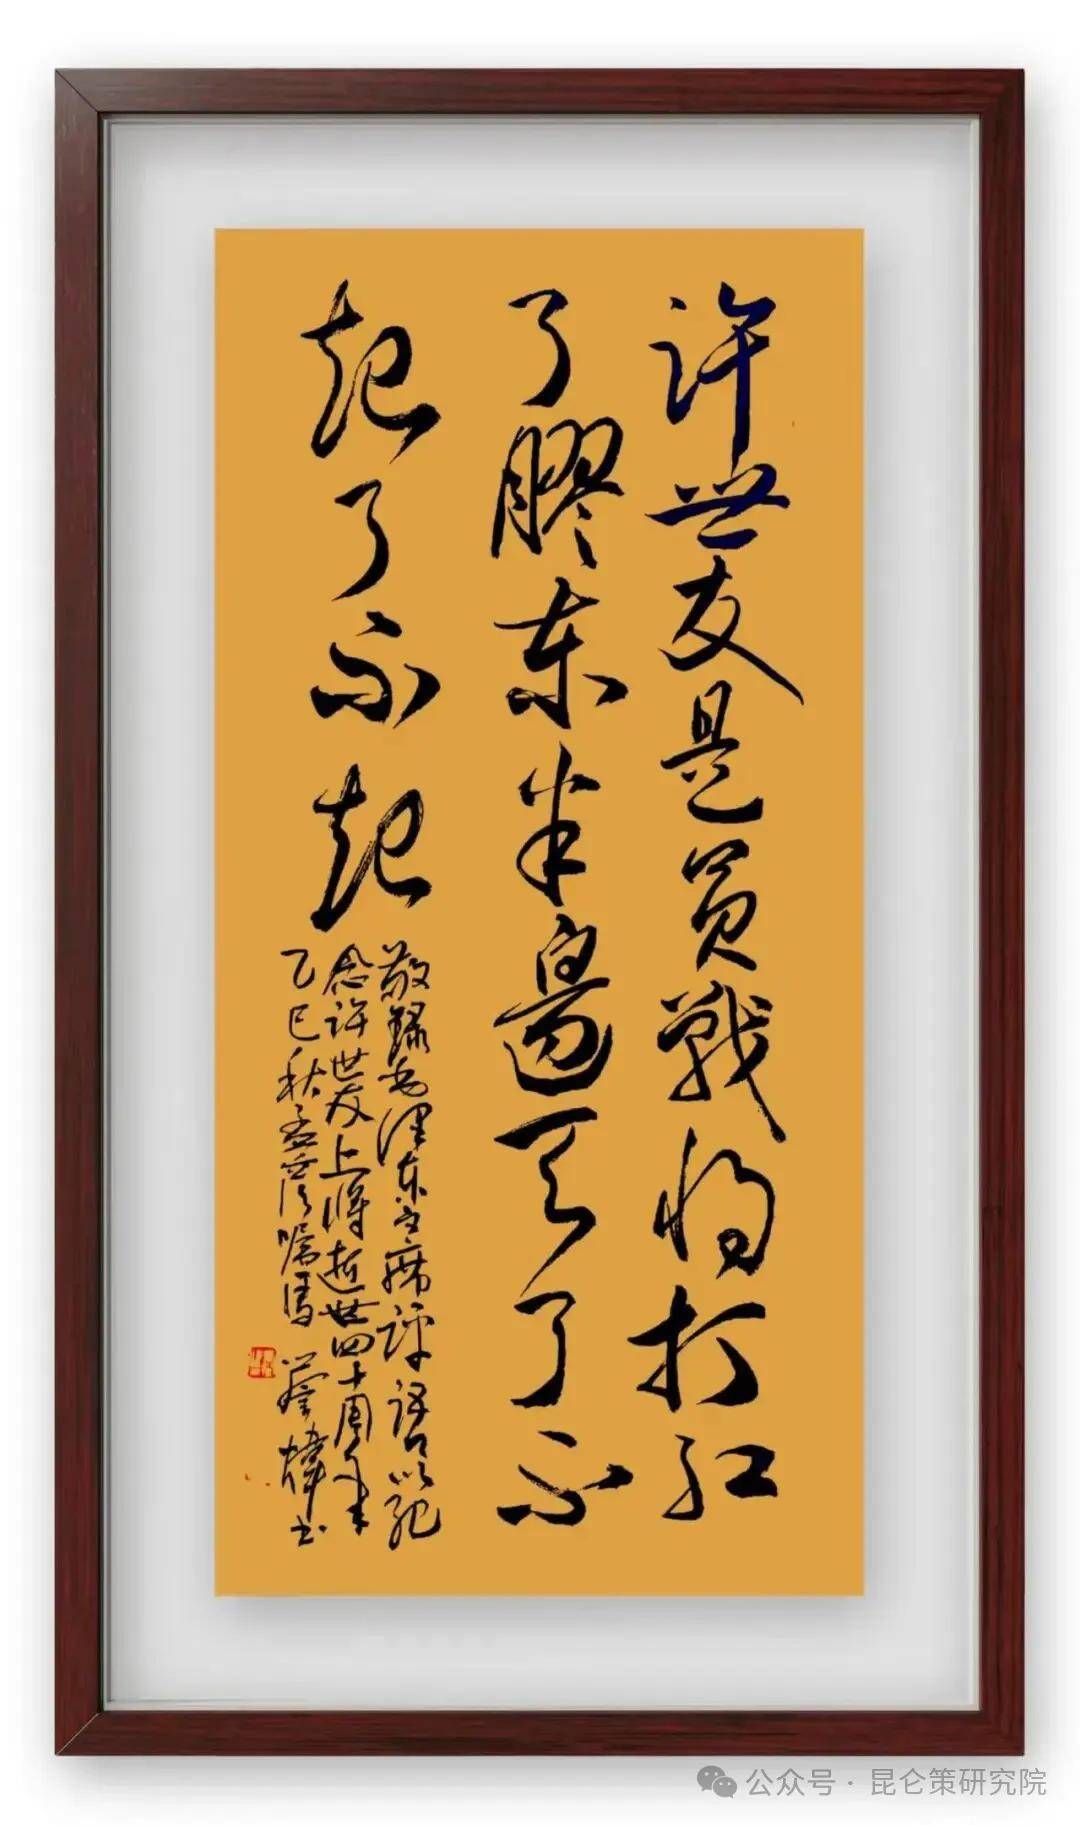 许世友是员戰将打红
了膠东半邊天了不
起了不起
敬録毛泽东主席评语以纪
念许世友上将逝世四十周年
乙巳秋孟 嘱 蔡煒书
公众号 · 昆仑策研究院